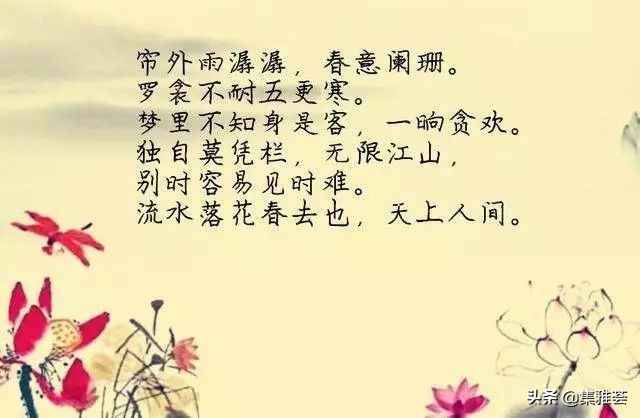 帘外雨潺潺，春意阑珊。
罗衾不耐五更寒。
梦里不知身是客，一晌贪欢。
独自莫凭栏，无限江山，
别时容易见时难。
流水落花春去也，天上人间。
头条 @集雅荟